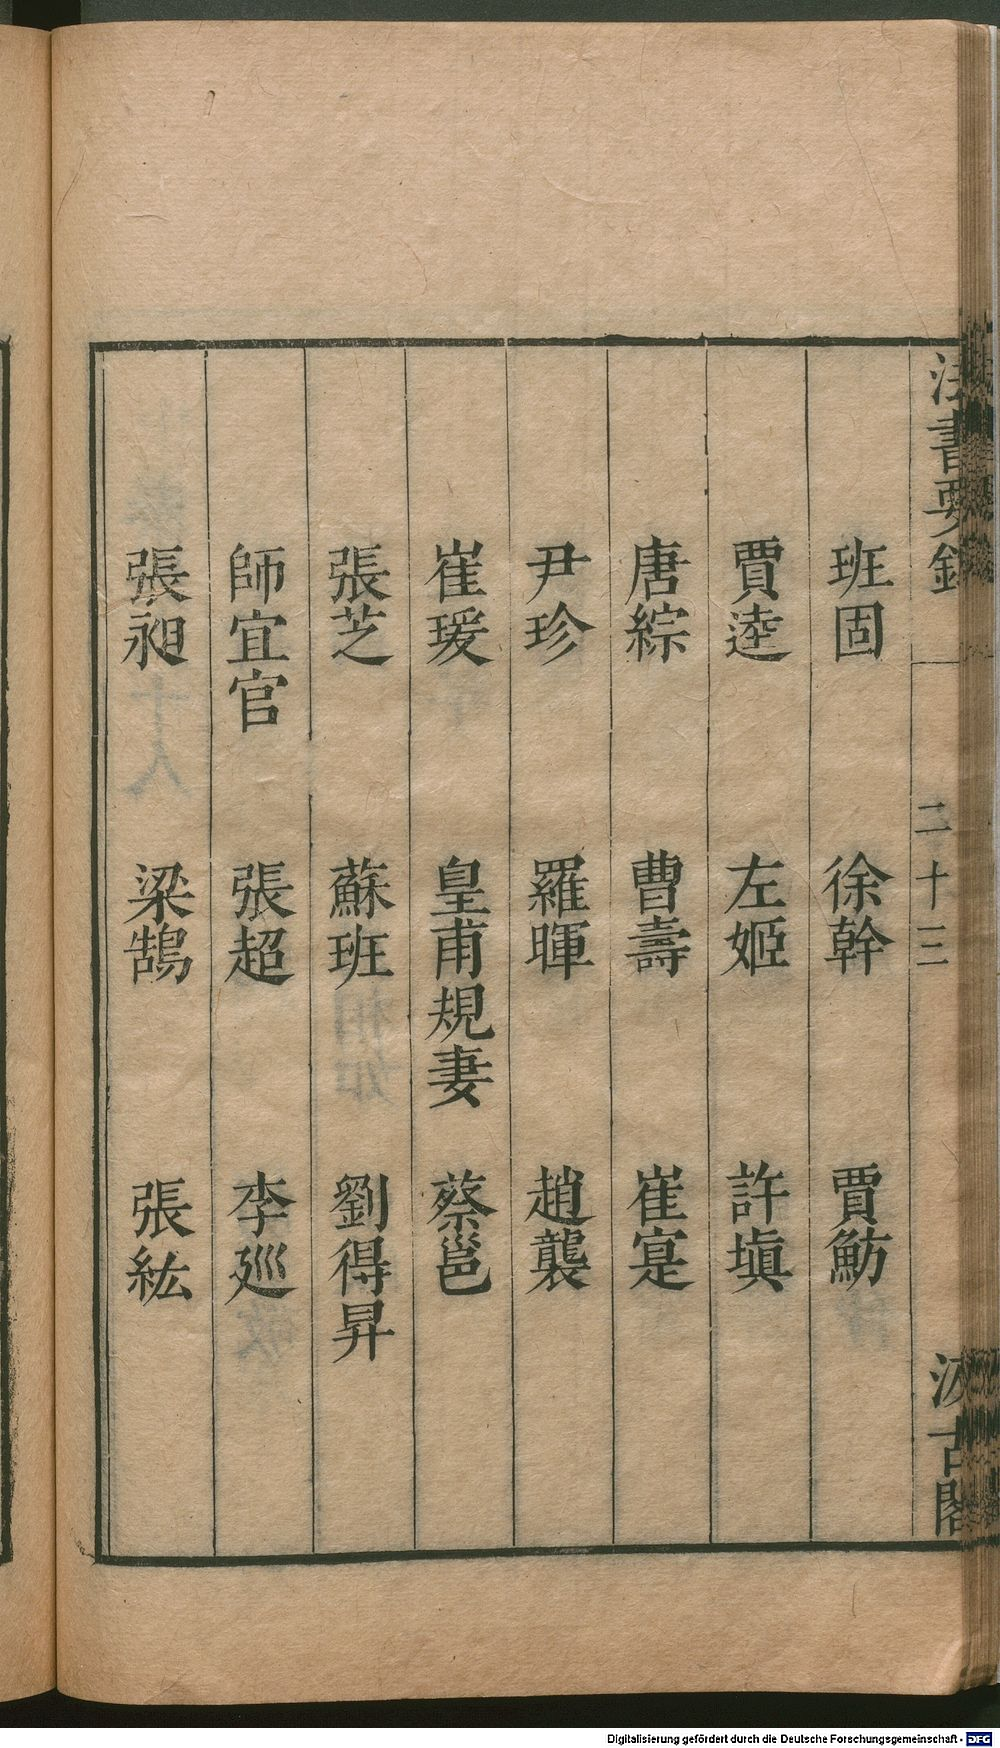 法書要錄
二十三
汲古閣
班固　徐幹　賈魴
賈逵　左姬　許塡
唐綜　曹壽　崔寔
尹珍　羅暉　趙襲
崔瑗　皇甫規妻　蔡邕
張芝　蘇班　劉得昇
師宜官　張超　李廵
張昶　梁鵠　張紘
Digitalisierung gefördert durch die Deutsche Forschungsgemeinschaft - DFG